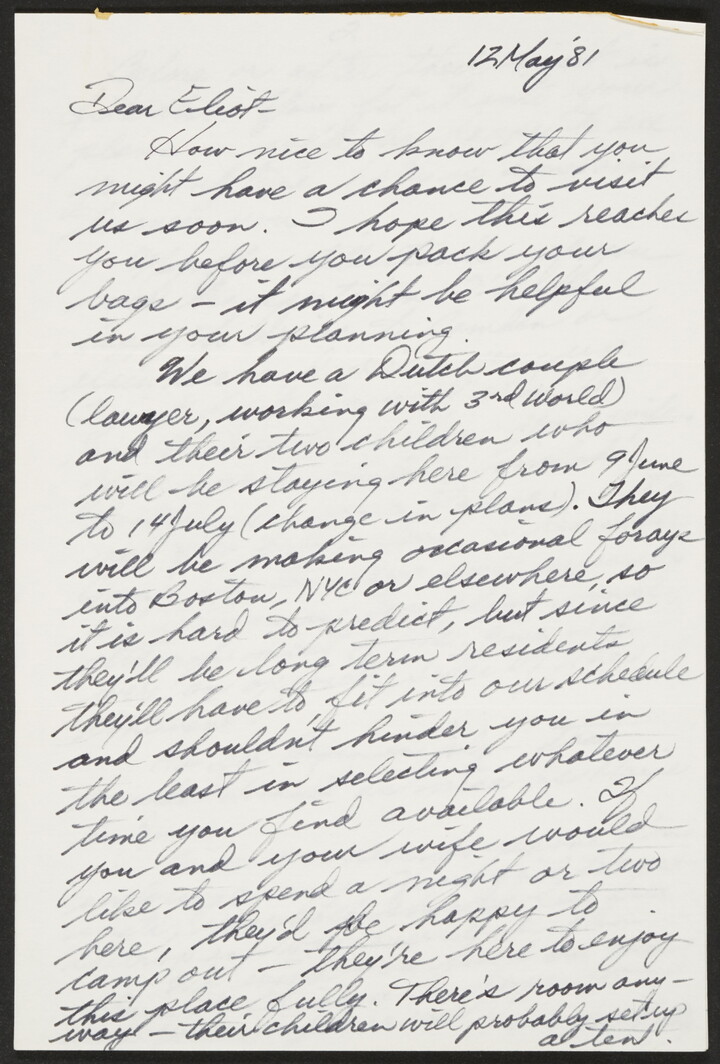 12 May '81
Dear Eliot-
How nice to know that you
might have a chance to visit
us soon. I hope this reaches
you before you pack your
bags - it might be helpful
in your planning.
We have a Dutch couple
(lawyer, working with 3rd World)
and their two children who
will be staying here from 9 June
to 14 July (change in plans). They
will be making occasional forays
into Boston, NYC or elsewhere, so
it is hard to predict, but since
they'll be long term residents
they'll have to fit into our schedule
and shouldn't hinder you in
the least in selecting whatever
time you find available. If
you and your wife would
like to spend a night or two
here, they'd be happy to
camp out - they're here to enjoy
this place fully. There's room any-
way - their children will probably set up
a tent.